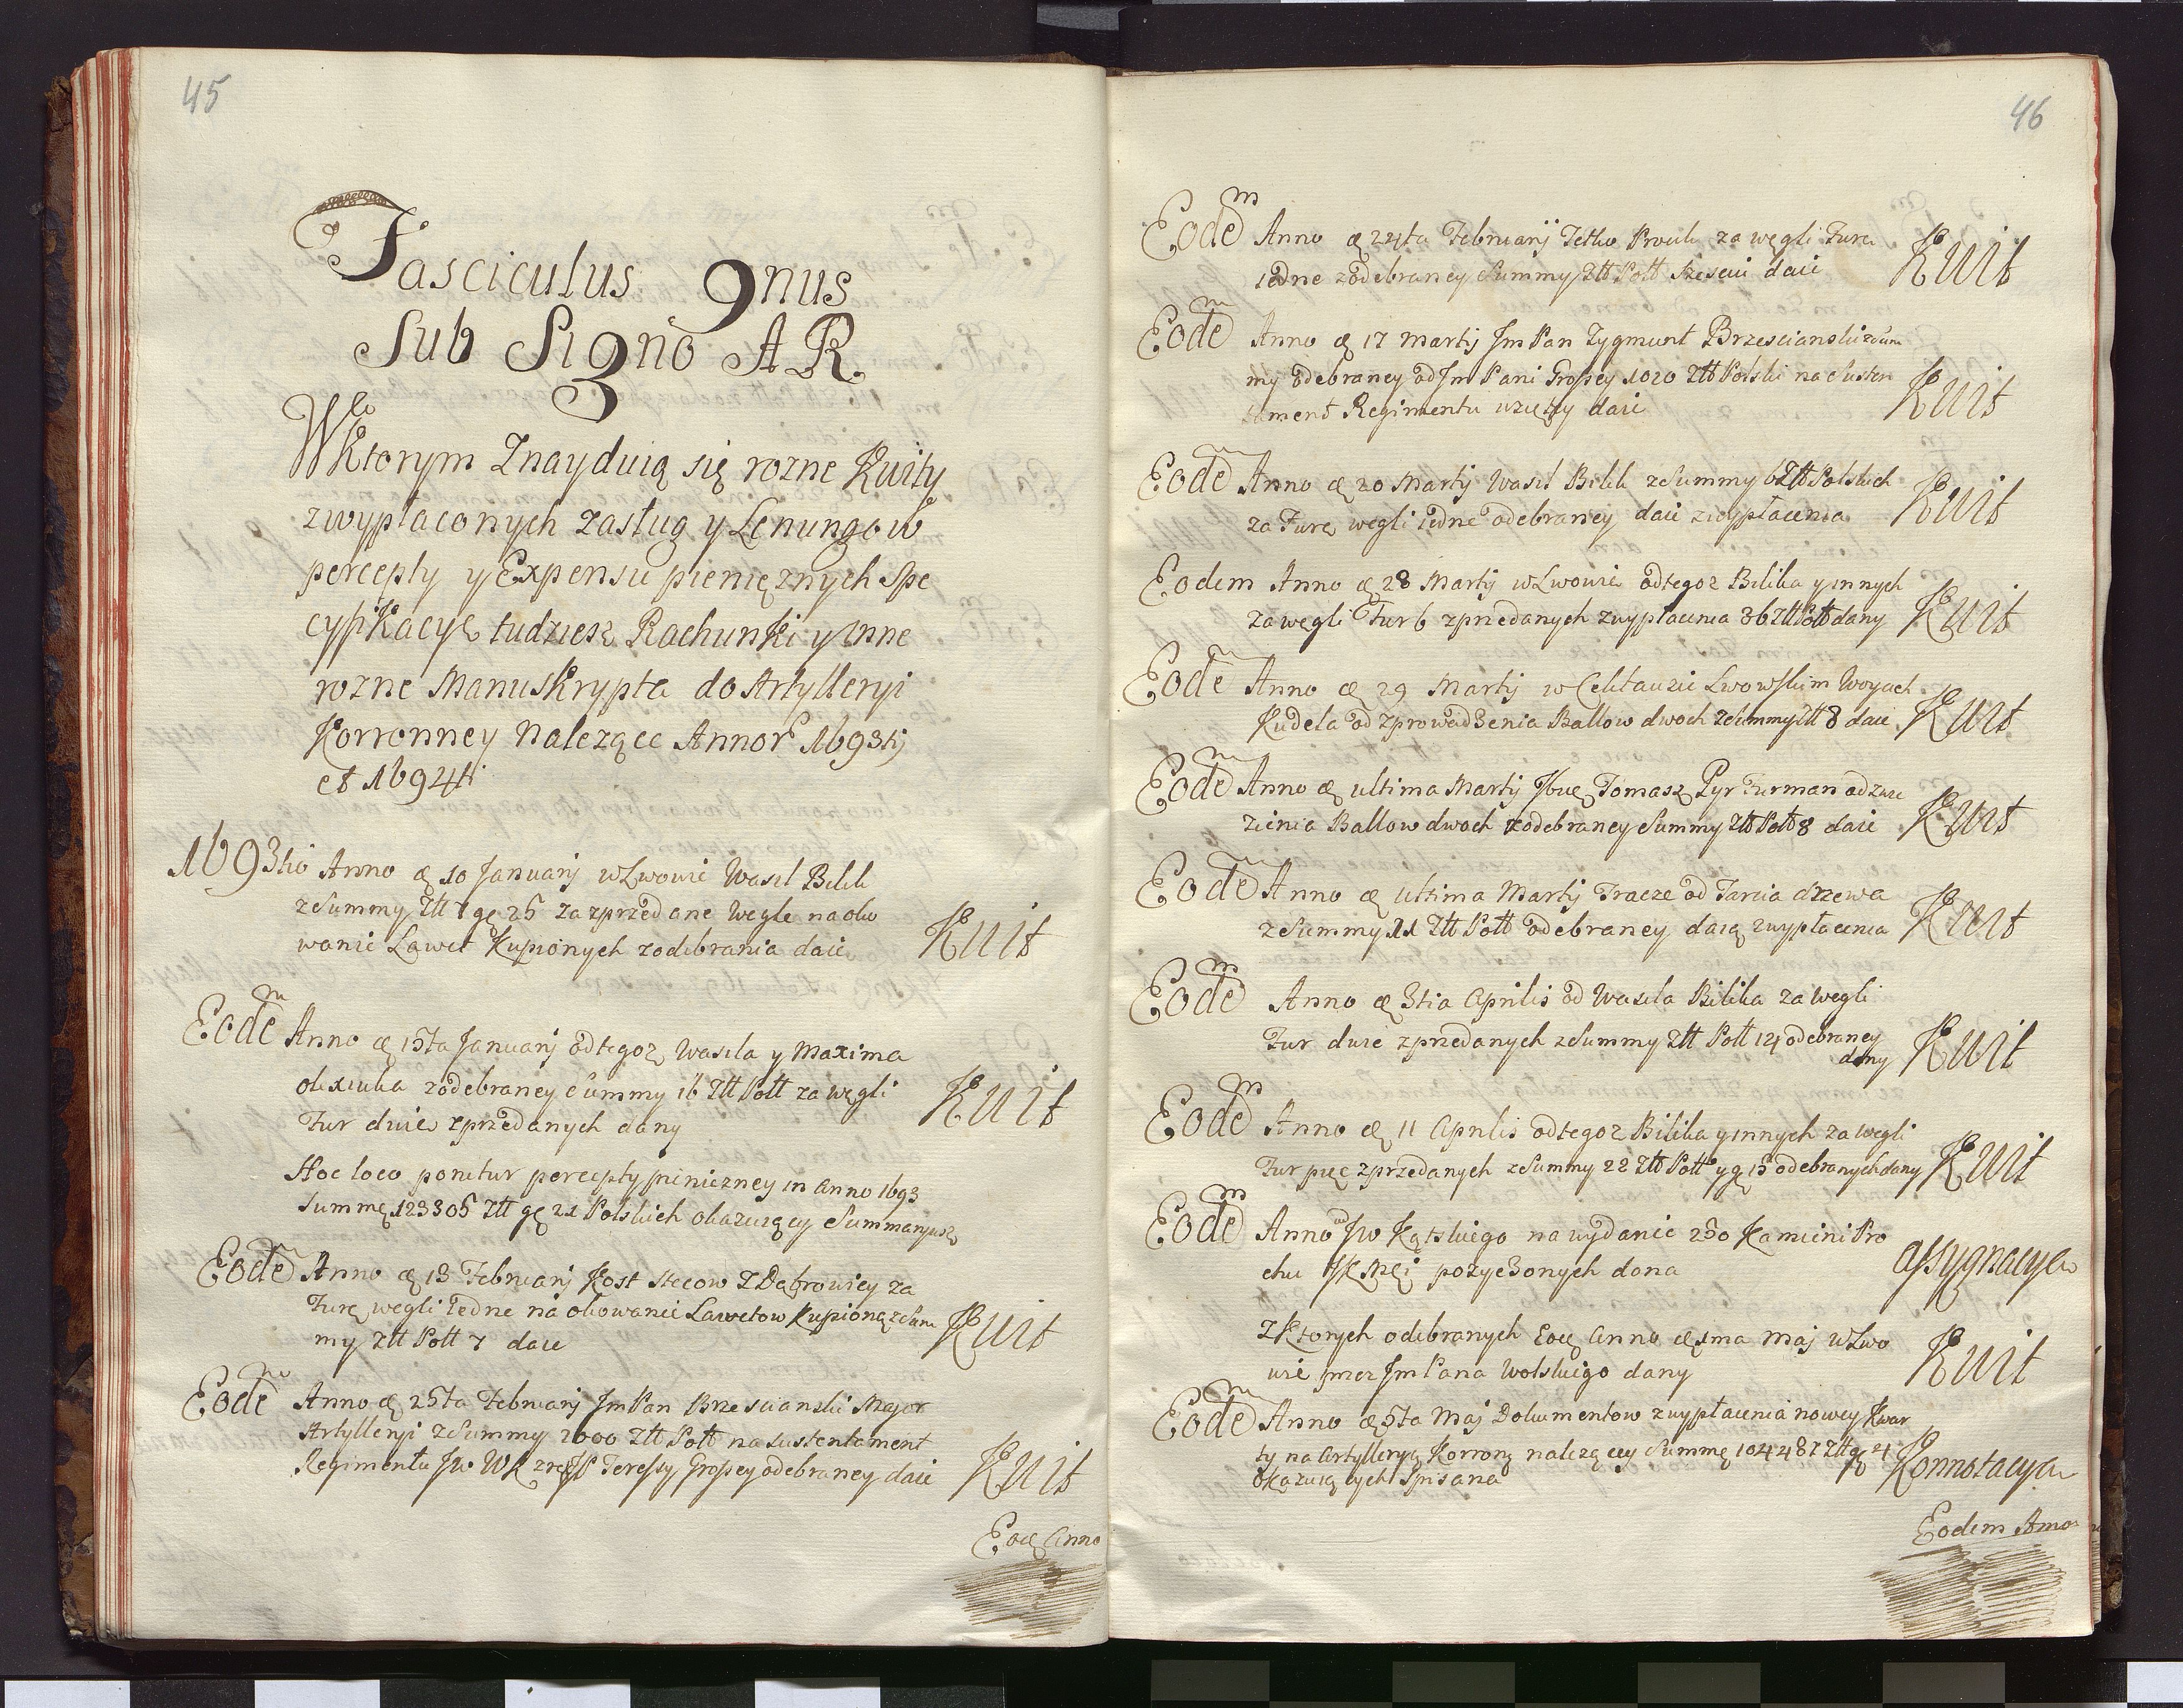 45
Fasciculus 9nus
Sub Signo AR
3
W Ktorym Znayduią się rozne Kwity
zwypłaconych zasług y Lenungow
percepty y Expensie pieniężnych Spe
cyfikacye tudziesz Rachunki y inne
rozne Manuskrypta do Artylleryi
Korronney Nalezące Annor 1693tij
et 1694ti
1693tio Anno d 10 Januarij w Lwowie Wasil Bilik
z Summy Złł 7 gr 25 za zprzedane Węgle na oku
wanie Lawet Kupionych zodebrania daie Kwit
Eodem Anno d 15ta Januarij od tegoz Wasila y Maxima
zodebraney Summy 16 Złł Poll za węgli
Fur dwie zprzedanych dany Kwit
Hoc loco ponitur percepty pinieżney in Anno 1693
Summę 123305 Złł gr 21 Polskich okazuiący Summaryusz
Eodem Anno d 13 Februarij Kost Stecow z Dąbrowicy za
Furę węgli iedne na okowanie Lawetow Kupioną z Sum
my Złł Poll 7 daie Kwit
Eodem Anno d 25ta Februarij Jm Pan Brzescianski Major
Artylleryi z Summy 2000 Złł Poll na sustentament
Regimentu Jw WK z rąk Teressy Grossey odebraney daie Kwit
Eod Anno
46
Eodem Anno d 24ta Februarij Fetko za węgli Fure
iedne zodebraney Summy Złł Poll szesciu daie Kwit
Eodem Anno d 17 Martij Jm Pan Zygmunt Brzescianski z Sum
my odebraney od Jm Pani Grossey 1020 Złł Polski na Susten
tament Regimentu wziętey daie Kwit
Eodem Anno d 20 Martij Wasil Bilik z Summy 6 Złł Polskich
za Furę węgli iedne odebraney daie z wypłacenia Kwit
Eodem Anno d 28 Martij w Lwowie od tegoz Bilika y innych
za węgli Fur 6 zprzedanych zwypłacenia 36 Złł Poll dany Kwit
Eodem Anno d 29 Martij w Cekauzie Lwowskim Woyciech
Kudela od zprowadzenia Ballow dwoch z Summy Złł 8 daie Kwit
Eodem Anno d ultima Martij Tomasz Pyr Furman od zwie
zienia Ballow dwoch zodebraney Summy Złł Poll 8 daie Kwit
Eodem Anno d ultima Martij Tracze od Tarcia drzewa
z Summy 11 Złł Poll odebraney daią zwypłacenia Kwit
Eodem Anno d 3tia Aprilis od Wasila Bilika za Węgli
Fur dwie zprzedanych z Summy Złł Poll 14 odebraney
dany Kwit
Eodem Anno d 11 Aprilis od tegoz Bilika y innych za węgli
Fur pięc zprzedanych z Summy 22 Złł Poll y gr 15 odebranych dany Kwit
Eodem Anno od Jw Kątskiego na wydanie 250 Kamieni Pro
chu pozyczonych dana Assygnacya
Z Ktorych odebranych Eod Anno d 1ma Maj w Lwo
wie przez Jm Pana Wolskiego dany Kwit
Eodem Anno d 5ta Maj Dokumentow zwypłacenia nowey Kwar
ty na Artylleryą Korroną nalezącey Summę 104487 Złł gr 4
okazuiących Spisana Konnotacya
Eodem Anno